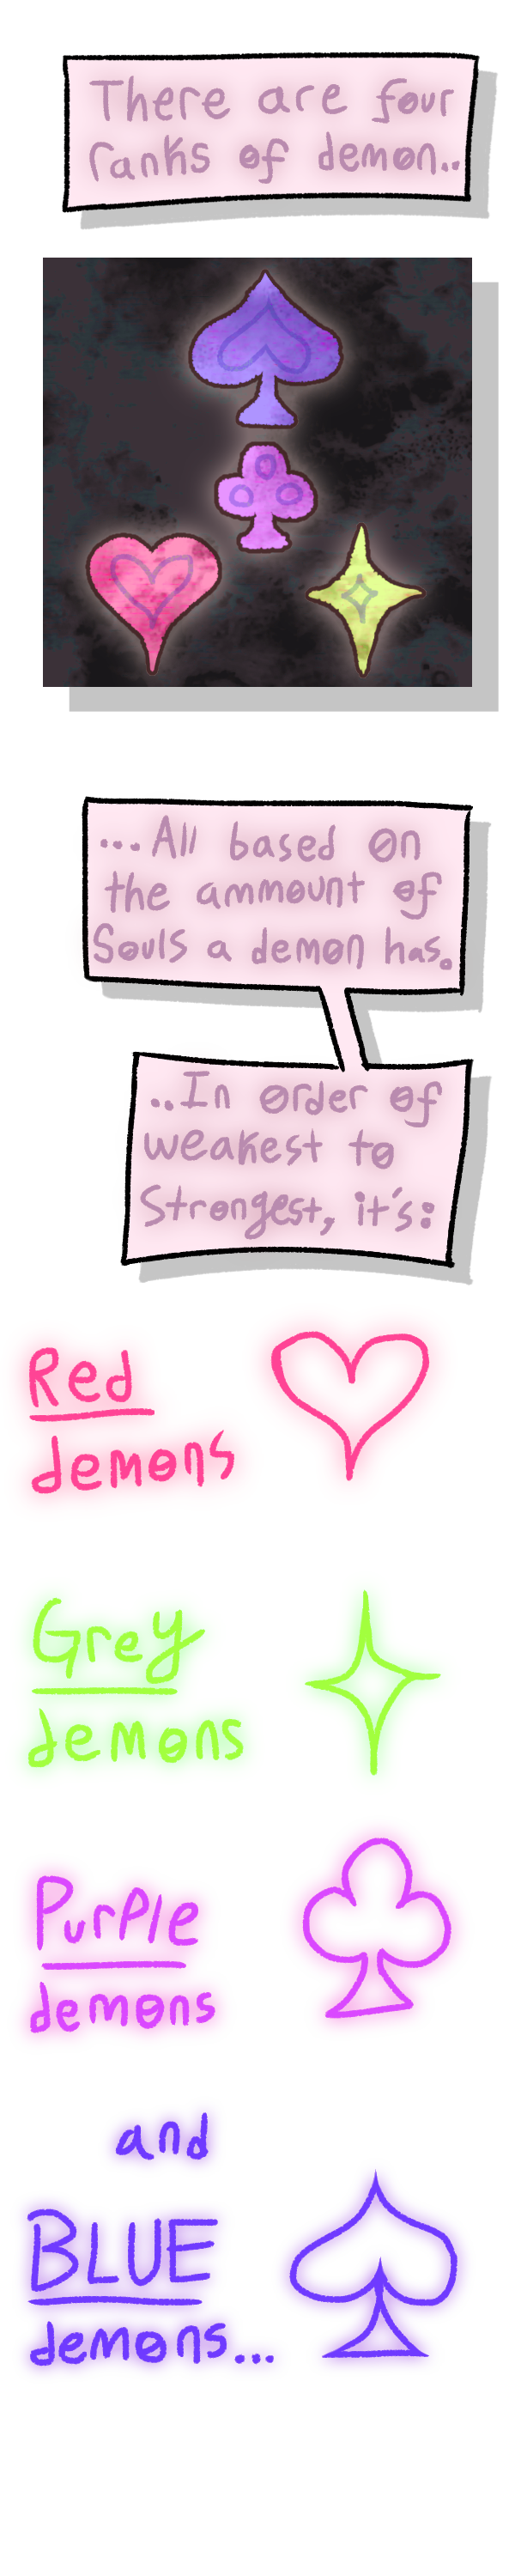 There are four
ranks of demon..
...All based on
the ammount of
Souls a demon has.
..In order of
weakest to
Strongest, it's:
Red
demons
Grey
demons
Purple
demons
and
BLUE
demons...